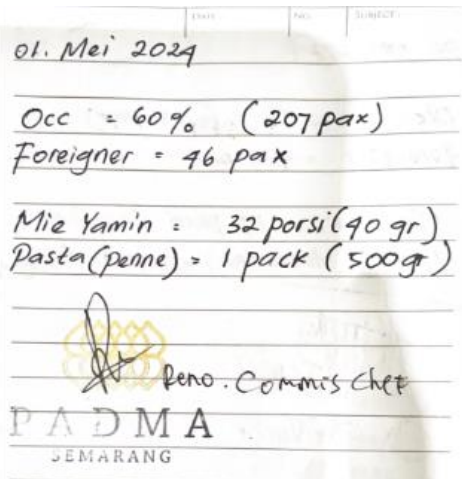 DATE: NO: SUBJECT:
01. Mei 2024
Occ = 60% (207 pax)
Foreigner = 46 pax
Mie Yamin = 32 porsi (40 gr)
Pasta (penne) = 1 pack (500gr)
Reno. Commis Chef
PADMA
SEMARANG